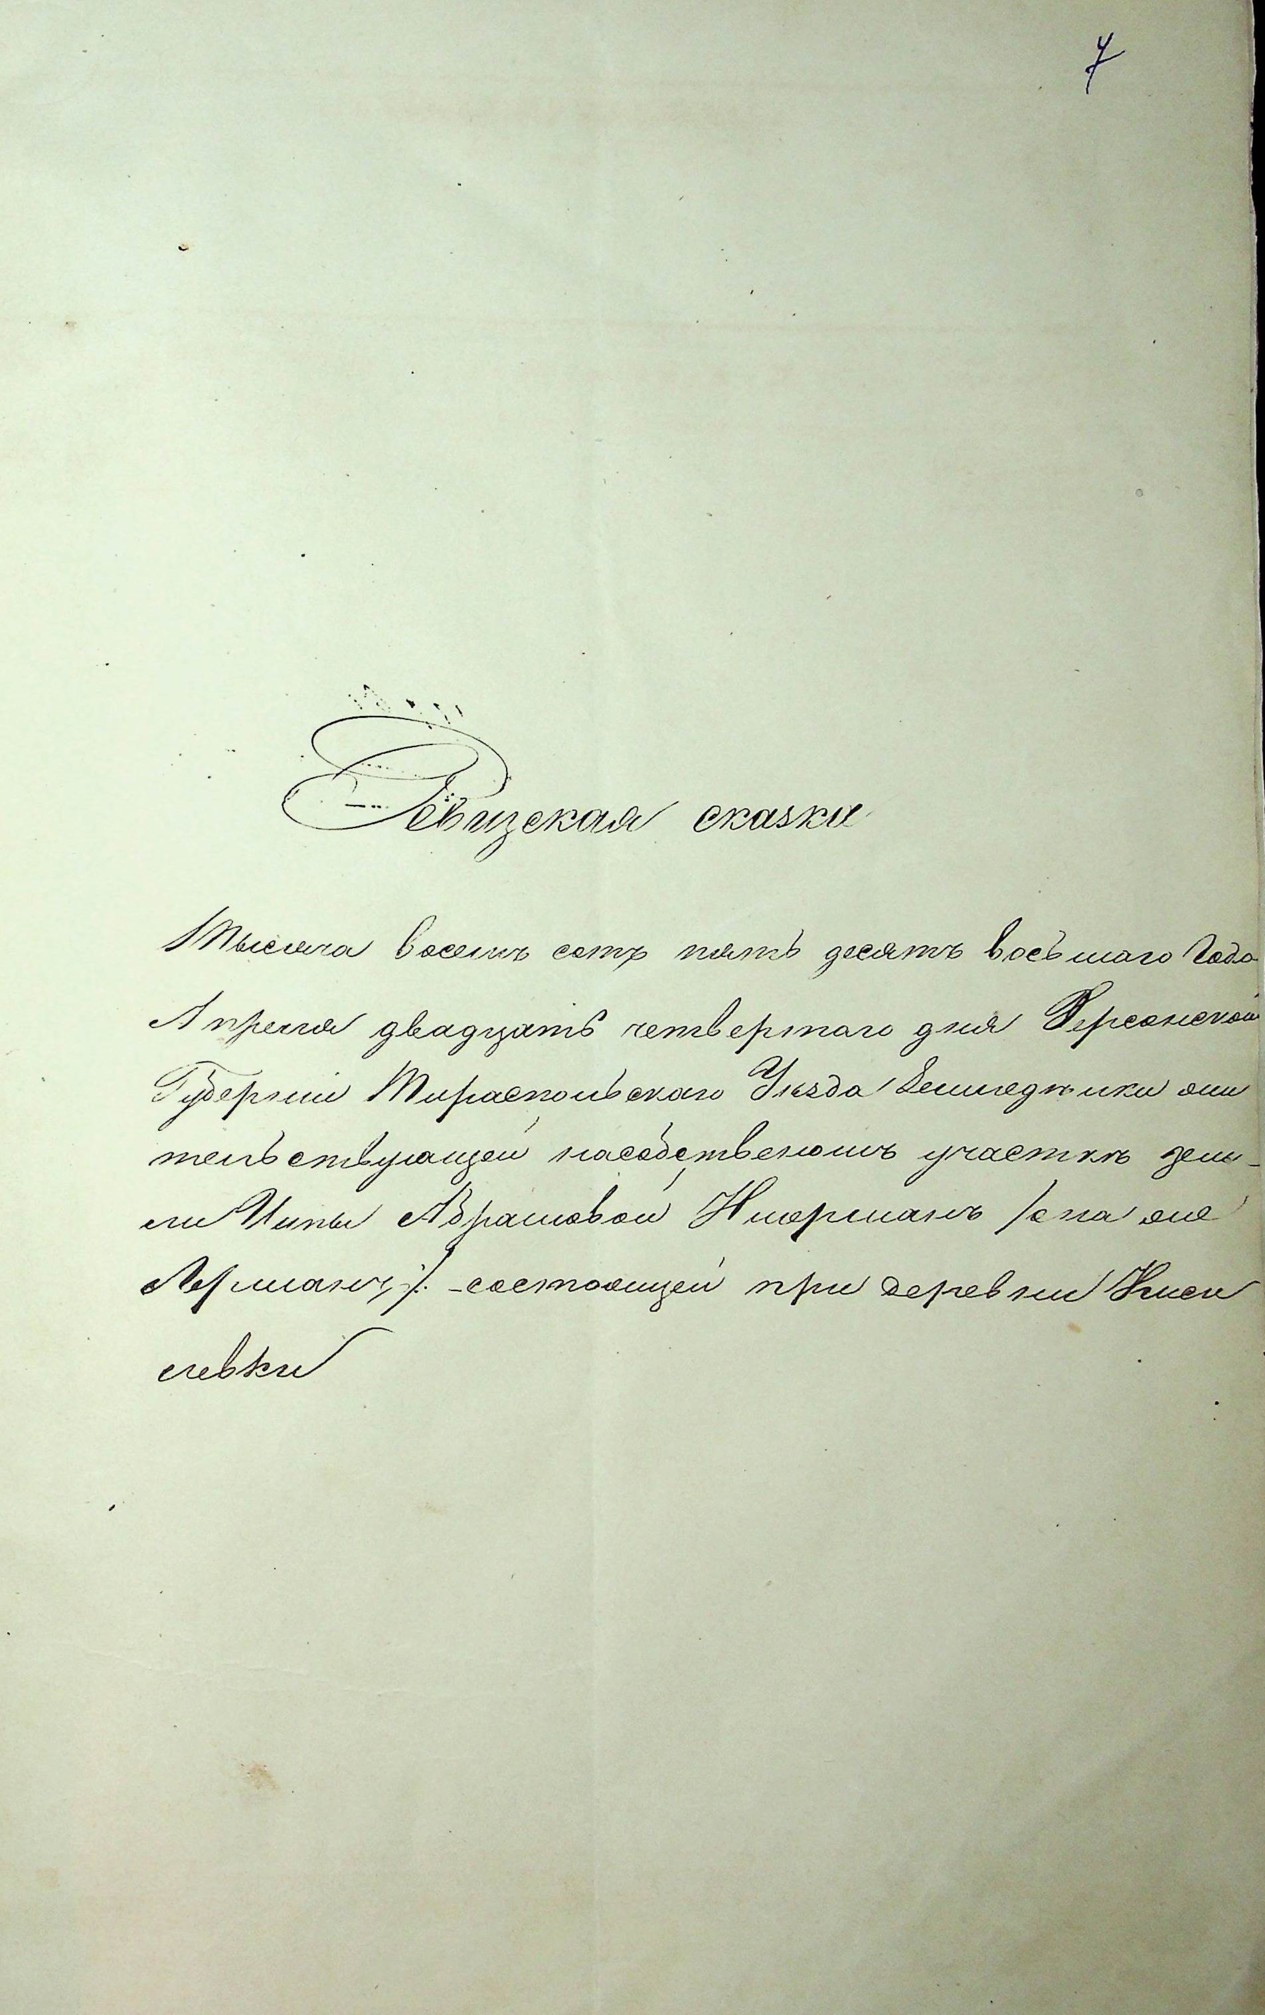 7
Ревизская сказка
Тысяча восемъ сотъ пять десятъ восьмаго Года
Апреля двадцать четвертаго дня Херсонской
Губерніи Тираспольскаго Уезда Земледѣлки жи
тельствующей насобственомъ участкѣ зем-
ли Ципы Абрамовой Ншерманъ /она же
Лерманъ/. состоящей при деревни Киси
левки